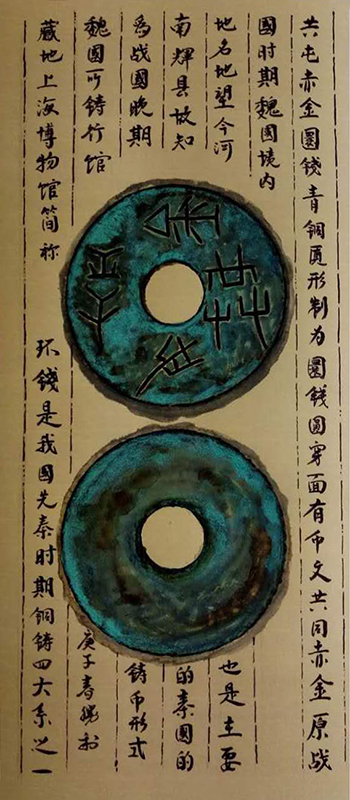 共屯赤金圜錢青銅圓形制为圜錢圆穿面有币文共同赤金原战
國时期魏國境内
地名地望今河
南輝县故知
為战國晚期
魏國可铸行馆
藏地上海博物馆简称
环錢是我國先秦时期铜铸四大系之一
也是主要
的秦國的
铸币形式
庚子春